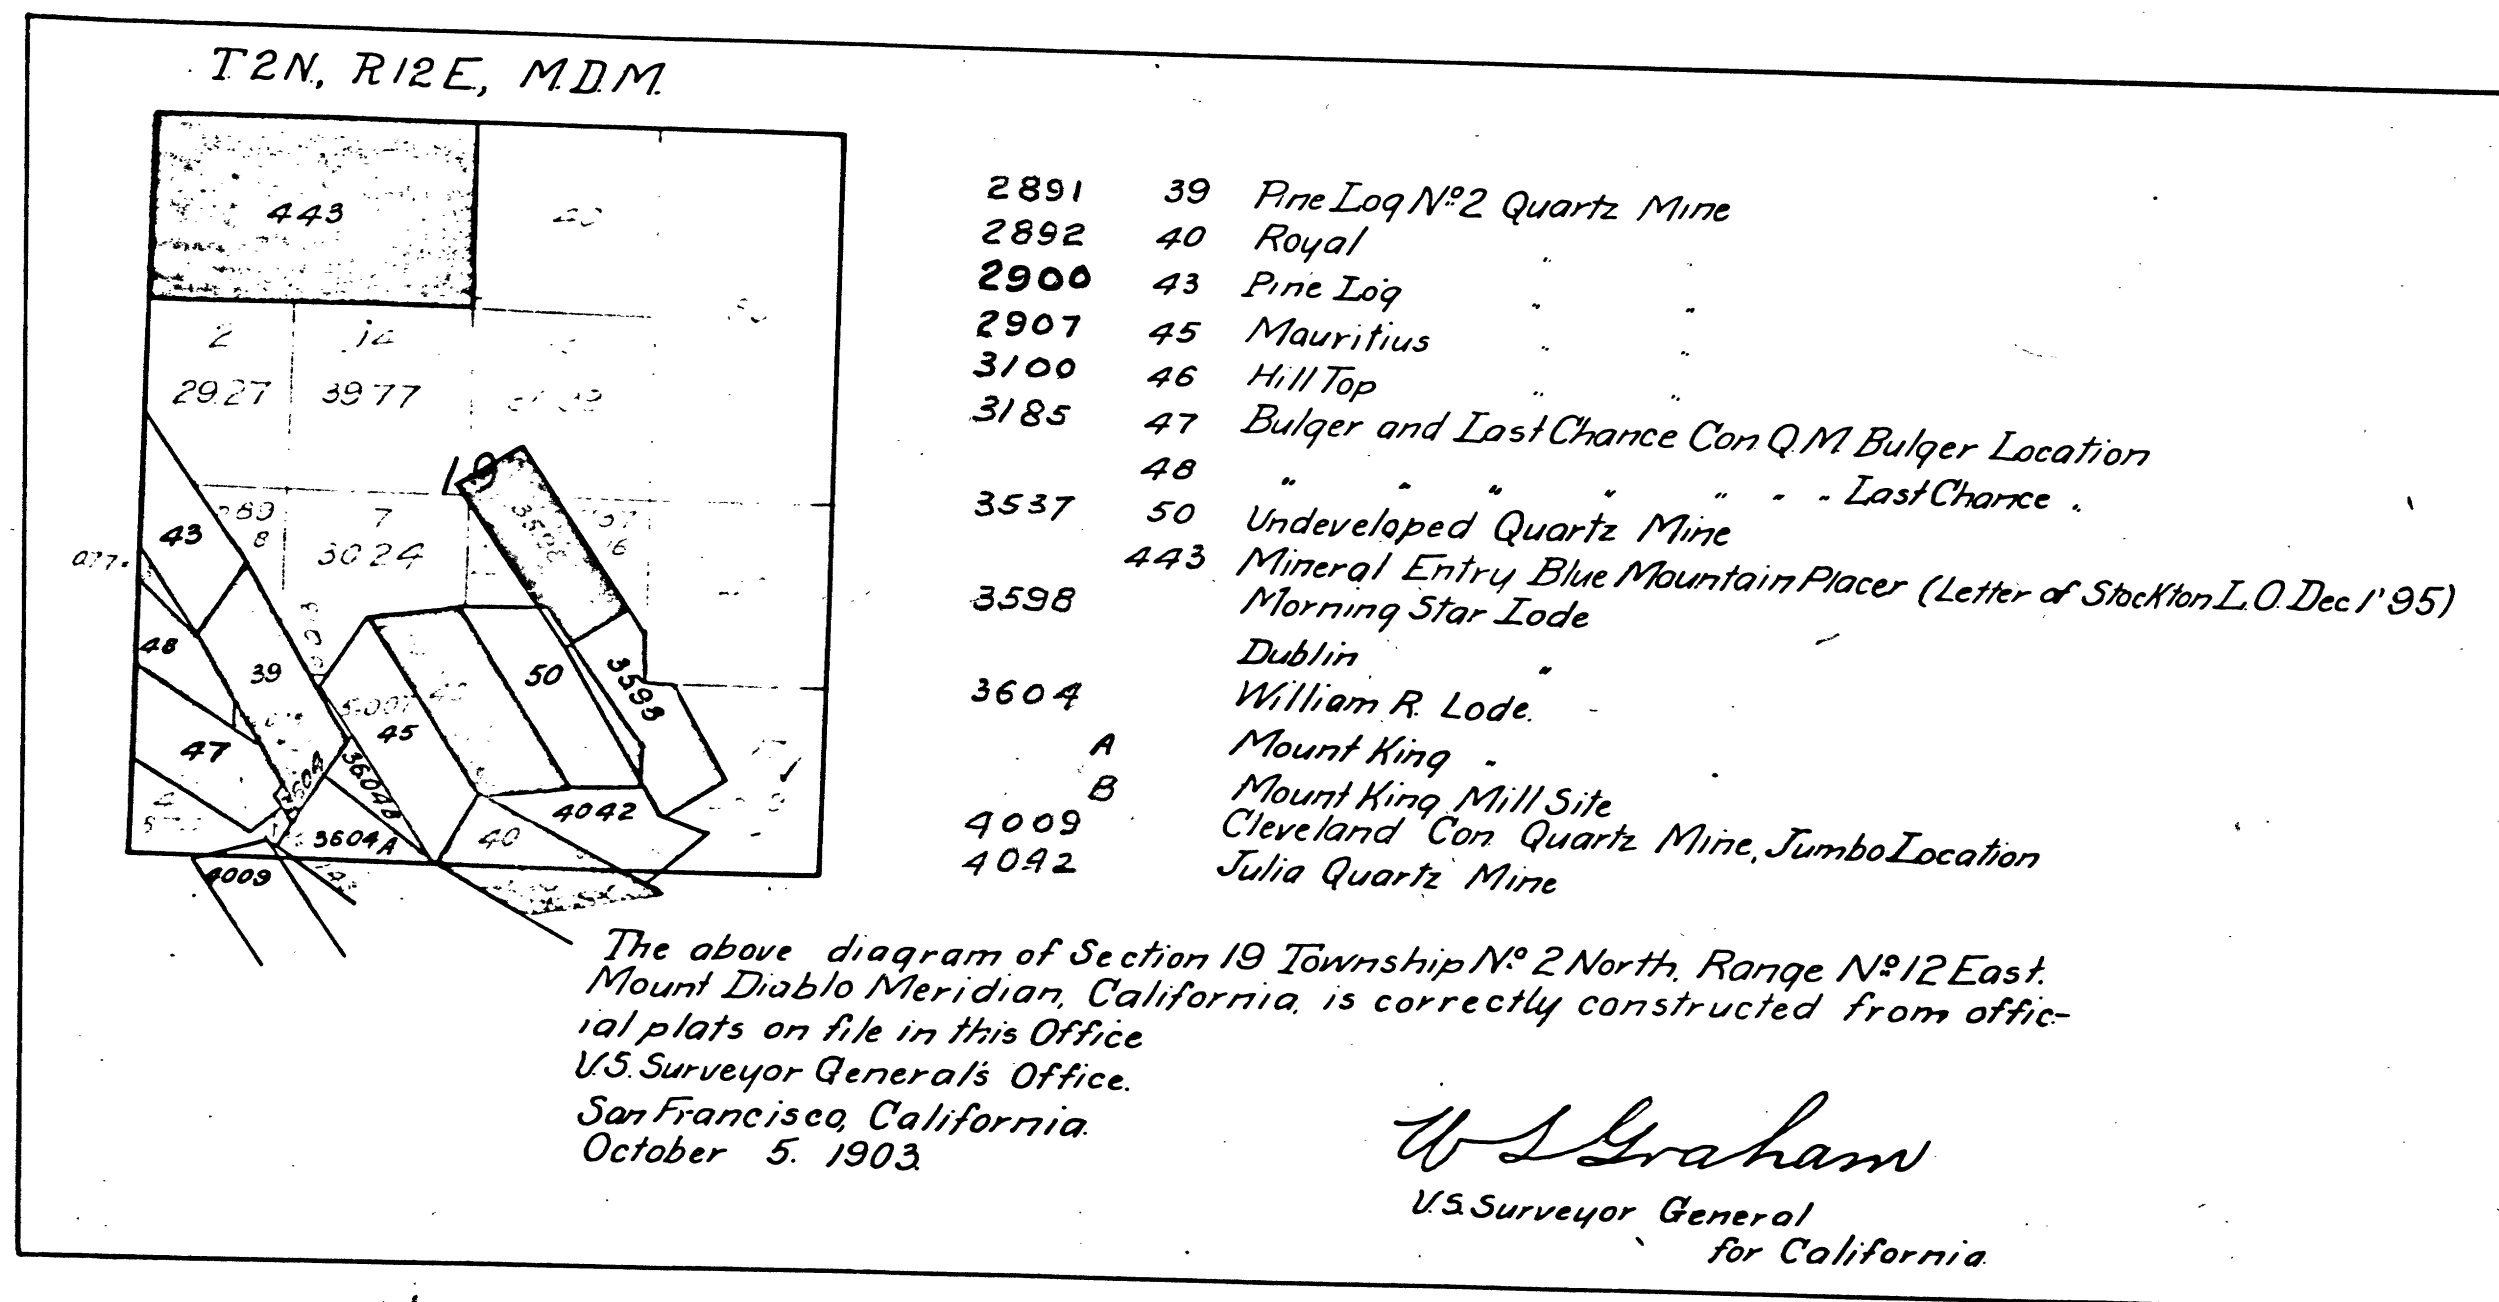 T.2N., R12E., M.D.M.
443
2
29.27
39.77
19
43
7
30.24
48
39
50
3598
45
47
3604B
4042
40
3604A
4009
2891 39 Pine Log No. 2 Quartz Mine
2892 40 Royal " "
2900 43 Pine Log " "
2907 45 Mauritius " "
3100 46 Hill Top " "
3185 47 Bulger and Last Chance Con. Q.M. Bulger Location
48 " " " " " " " Last Chance "
3537 50 Undeveloped Quartz Mine
443 Mineral Entry Blue Mountain Placer (Letter of Stockton L.O. Dec 1' 95)
3598 Morning Star Lode
Dublin "
3604 William R. Lode.
A Mount King "
B Mount King Mill Site
4009 Cleveland Con. Quartz Mine, Jumbo Location
4042 Julia Quartz Mine
The above diagram of Section 19 Township No. 2 North, Range No. 12 East.
Mount Diablo Meridian, California, is correctly constructed from offic-
ial plats on file in this Office
U.S. Surveyor General's Office.
San Francisco, California.
October 5. 1903.
W S Graham
U.S. Surveyor General
for California